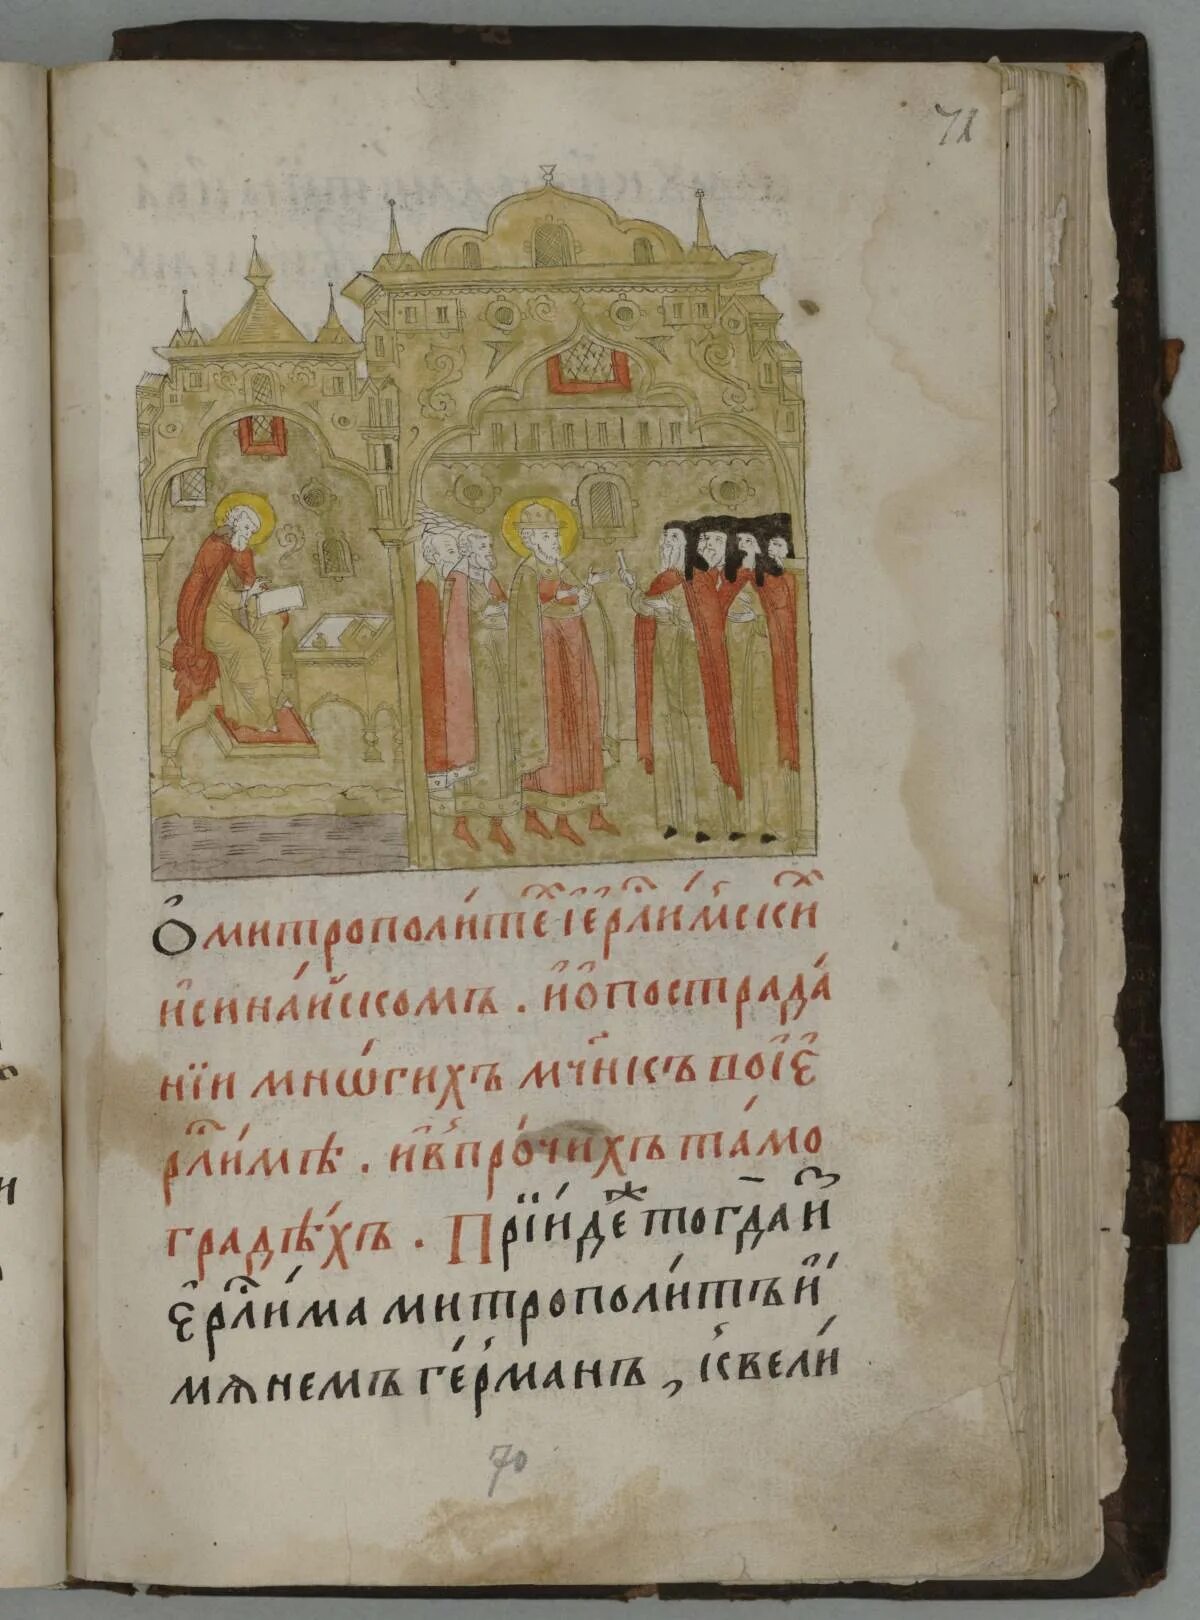 71
О митрополи́тѣ і҆ерⷭ҇ли́мскⷭ҇и
и҆ сина́йскомъ . и҆ ѡ҆ пострада́
нїи мнѡ́гихъ мчн҃къ во і҆є
рⷭ҇ли́мѣ . и҆ в про́чихъ та́мо
градѣ́хъ . Прїи́де же тогда̀ и҆з̾
є҆рⷭ҇ли́ма митрополи́тъ и҆́
мянемъ ге́рманъ , к вели́
70